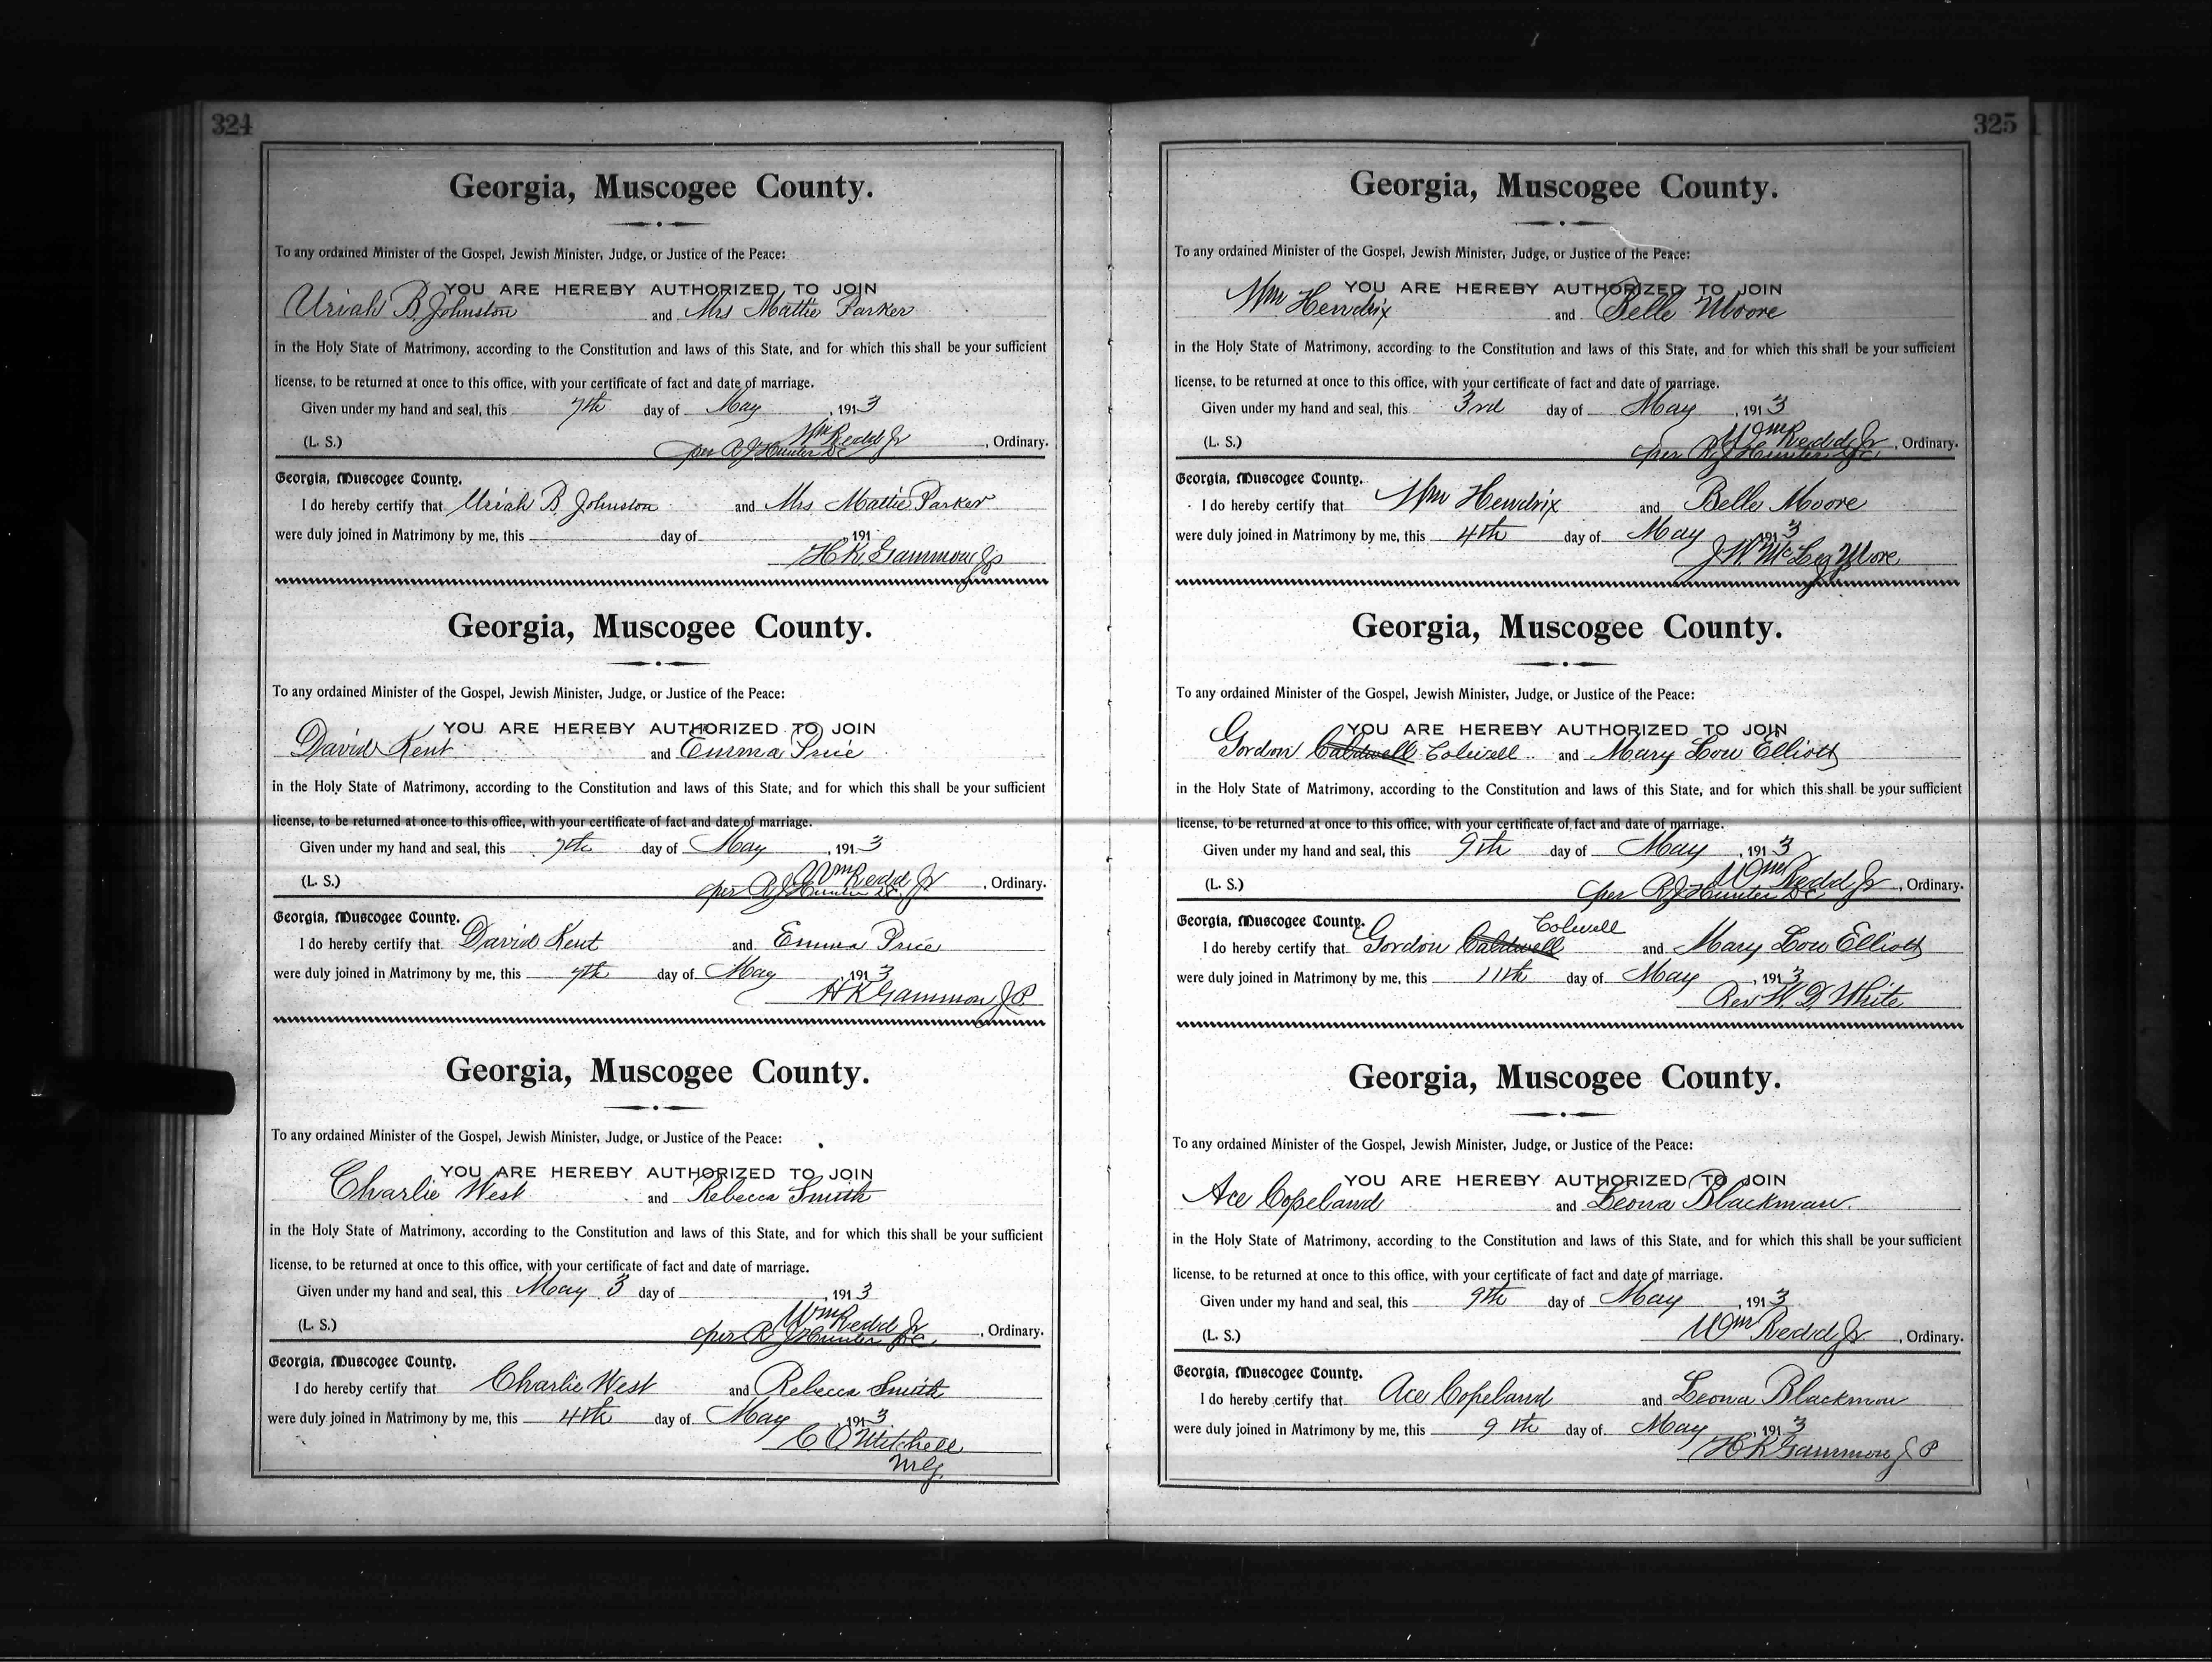 324
Georgia, Muscogee County.
To any ordained Minister of the Gospel, Jewish Minister, Judge, or Justice of the Peace:
YOU ARE HEREBY AUTHORIZED TO JOIN
Uriah B Johnston and Mrs Mattie Parker
in the Holy State of Matrimony, according to the Constitution and laws of this State, and for which this shall be your sufficient
license, to be returned at once to this office, with your certificate of fact and date of marriage.
Given under my hand and seal, this 7th day of May, 1913
Wm Redd Jr
(L. S.) per R J Hunter DC, Ordinary.
Georgia, Muscogee County.
I do hereby certify that Uriah B. Johnston and Mrs Mattie Parker
were duly joined in Matrimony by me, this day of 191
H K. Gammon Jp
Georgia, Muscogee County.
To any ordained Minister of the Gospel, Jewish Minister, Judge, or Justice of the Peace:
YOU ARE HEREBY AUTHORIZED TO JOIN
David Kent and Emma Price
in the Holy State of Matrimony, according to the Constitution and laws of this State, and for which this shall be your sufficient
license, to be returned at once to this office, with your certificate of fact and date of marriage.
Given under my hand and seal, this 7th day of May, 1913
Wm Redd Jr
(L. S.) per R J Hunter DC, Ordinary.
Georgia, Muscogee County.
I do hereby certify that David Kent and Emma Price
were duly joined in Matrimony by me, this 7th day of May, 1913
H K Gammon J P.
Georgia, Muscogee County.
To any ordained Minister of the Gospel, Jewish Minister, Judge, or Justice of the Peace:
YOU ARE HEREBY AUTHORIZED TO JOIN
Charlie West and Rebecca Smith
in the Holy State of Matrimony, according to the Constitution and laws of this State, and for which this shall be your sufficient
license, to be returned at once to this office, with your certificate of fact and date of marriage.
Given under my hand and seal, this May 3 day of, 1913
Wm Redd Jr
(L. S.) per R J Hunter DC, Ordinary.
Georgia, Muscogee County.
I do hereby certify that Charlie West and Rebecca Smith
were duly joined in Matrimony by me, this 4th day of May, 1913
C. O Mitchell
M.G.
325
Georgia, Muscogee County.
To any ordained Minister of the Gospel, Jewish Minister, Judge, or Justice of the Peace:
YOU ARE HEREBY AUTHORIZED TO JOIN
Wm Hendrix and Belle Moore
in the Holy State of Matrimony, according to the Constitution and laws of this State, and for which this shall be your sufficient
license, to be returned at once to this office, with your certificate of fact and date of marriage.
Given under my hand and seal, this 3rd day of May, 1913
Wm Redd Jr
(L. S.) per R J Hunter DC, Ordinary.
Georgia, Muscogee County.
I do hereby certify that Wm Hendrix and Belle Moore
were duly joined in Matrimony by me, this 4th day of May 1913
J. W. Mc
Georgia, Muscogee County.
To any ordained Minister of the Gospel, Jewish Minister, Judge, or Justice of the Peace:
YOU ARE HEREBY AUTHORIZED TO JOIN
Gordon Caldwell Colwell and Mary Lou Elliott
in the Holy State of Matrimony, according to the Constitution and laws of this State, and for which this shall be your sufficient
license, to be returned at once to this office, with your certificate of fact and date of marriage.
Given under my hand and seal, this 9th day of May, 1913
Wm Redd Jr
(L. S.) per R J Hunter DC, Ordinary.
Georgia, Muscogee County. Colwell
I do hereby certify that Gordon Caldwell and Mary Lou Elliott
were duly joined in Matrimony by me, this 11th day of May, 1913
Rev W. D. White
Georgia, Muscogee County.
To any ordained Minister of the Gospel, Jewish Minister, Judge, or Justice of the Peace:
YOU ARE HEREBY AUTHORIZED TO JOIN
Ace Copeland and Leona Blackman.
in the Holy State of Matrimony, according to the Constitution and laws of this State, and for which this shall be your sufficient
license, to be returned at once to this office, with your certificate of fact and date of marriage.
Given under my hand and seal, this 9th day of May, 1913
(L. S.) Wm Redd Jr., Ordinary.
Georgia, Muscogee County.
I do hereby certify that Ace Copeland and Leona Blackmon
were duly joined in Matrimony by me, this 9th day of May, 1913
H K Gammon J P